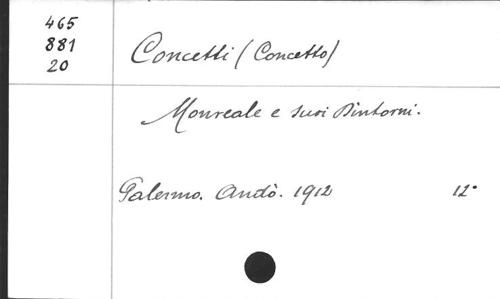 465
881
20
Concetti (Concetto)
Monreale e suoi Dintorni.
Palermo. Andò. 1912 12°